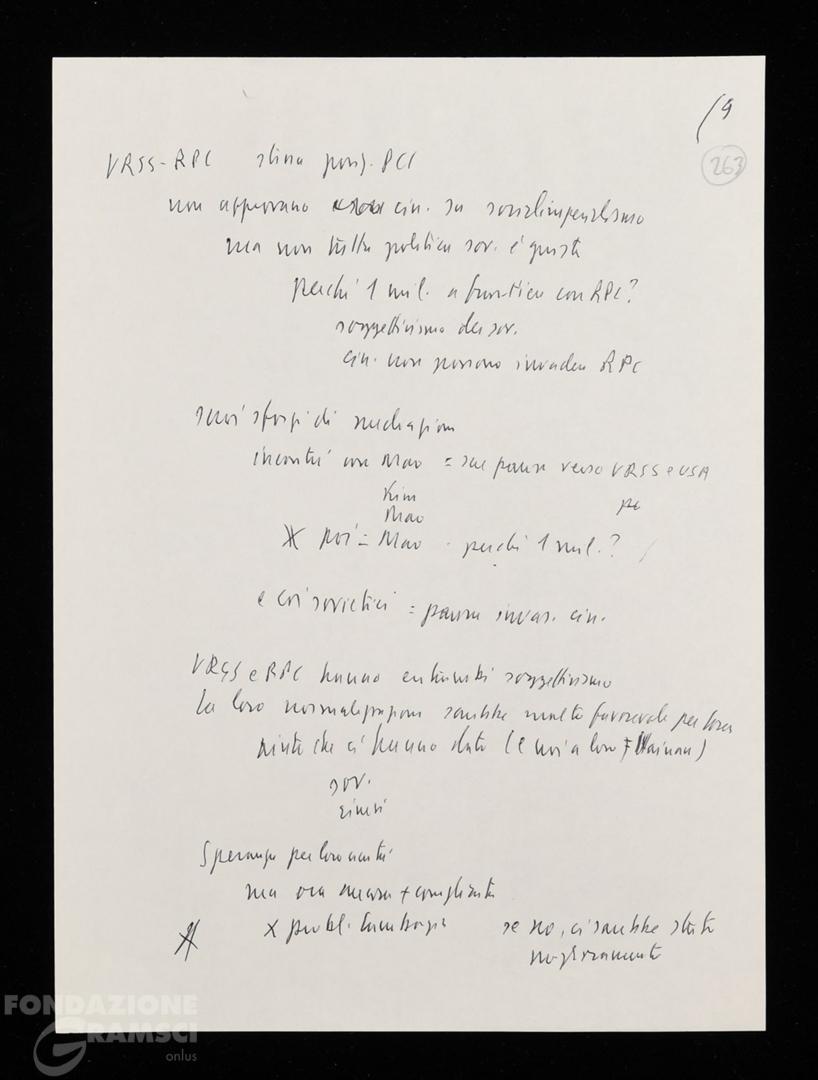 /9
263
URSS-RPC stima posiz. PCI
non approvano cin. su socialimperialismo
ma non tutta politica sov. è giusta
perché 1 mil. a frontiera con RPC?
soggettivismo dei sov.
cin. non possono invadere RPC
suoi sforzi di mediazione
incontri con Mao = sue paure verso URSS e USA
Kim
Mao
poi = Mao - perché 1 mil.?
e coi sovietici = paura invas. cin.
URSS e RPC hanno entrambi soggettivismo
La loro normalizzazione sarebbe molto favorevole per
che ci hanno dato (e noi a loro
sov.
cinesi
Speranza per loro unità
ma ora ancora + complicata
x probl. Cambogia se no, ci sarebbe stato
miglioramento
FONDAZIONE
GRAMSCI
onlus